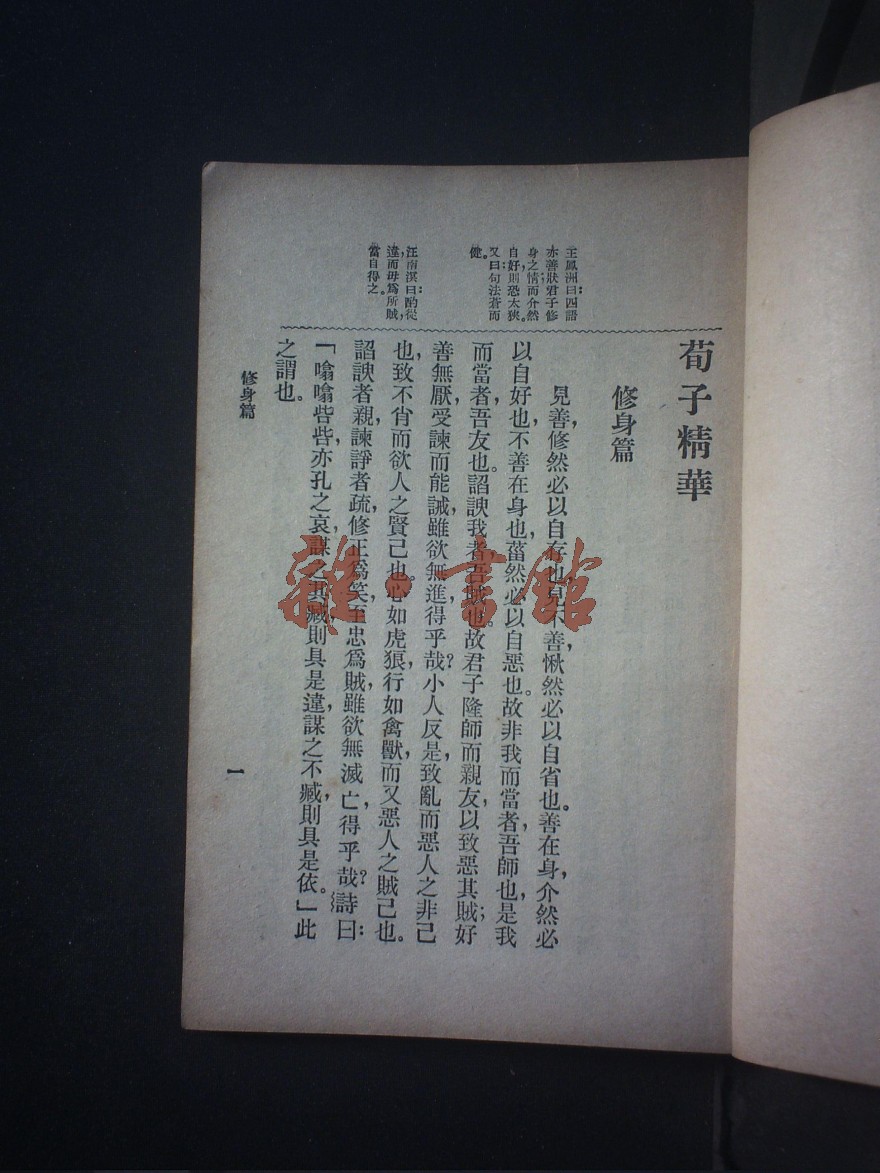 荀子精華
修身篇
見善，修然必以自存也，見不善，愀然必以自省也。善在身，介然必
以自好也，不善在身也，菑然必以自惡也。故非我而當者，吾師也，是我
而當者，吾友也。諂諛我者，吾賊也。故君子隆師而親友，以致惡其賊；好
善無厭，受諫而能誡，雖欲無進，得乎哉？小人反是，致亂而惡人之非己
也，致不肖而欲人之賢己也，心如虎狼，行如禽獸，而又惡人之賊己也。
諂諛者親，諫諍者疏，修正爲笑，至忠爲賊，雖欲無滅亡，得乎哉？詩曰：
「噏噏呰呰，亦孔之哀，謀之其臧，則具是違，謀之不臧，則具是依。」此
之謂也。
王鳳洲曰：四語
亦善狀君子修
身之情；而介然
自好，則恐太狹。
又曰：句法蒼而
健。
汪南溟曰：酌從
違而毋爲所賊，
當自得之。
修身篇
一
雜·書館